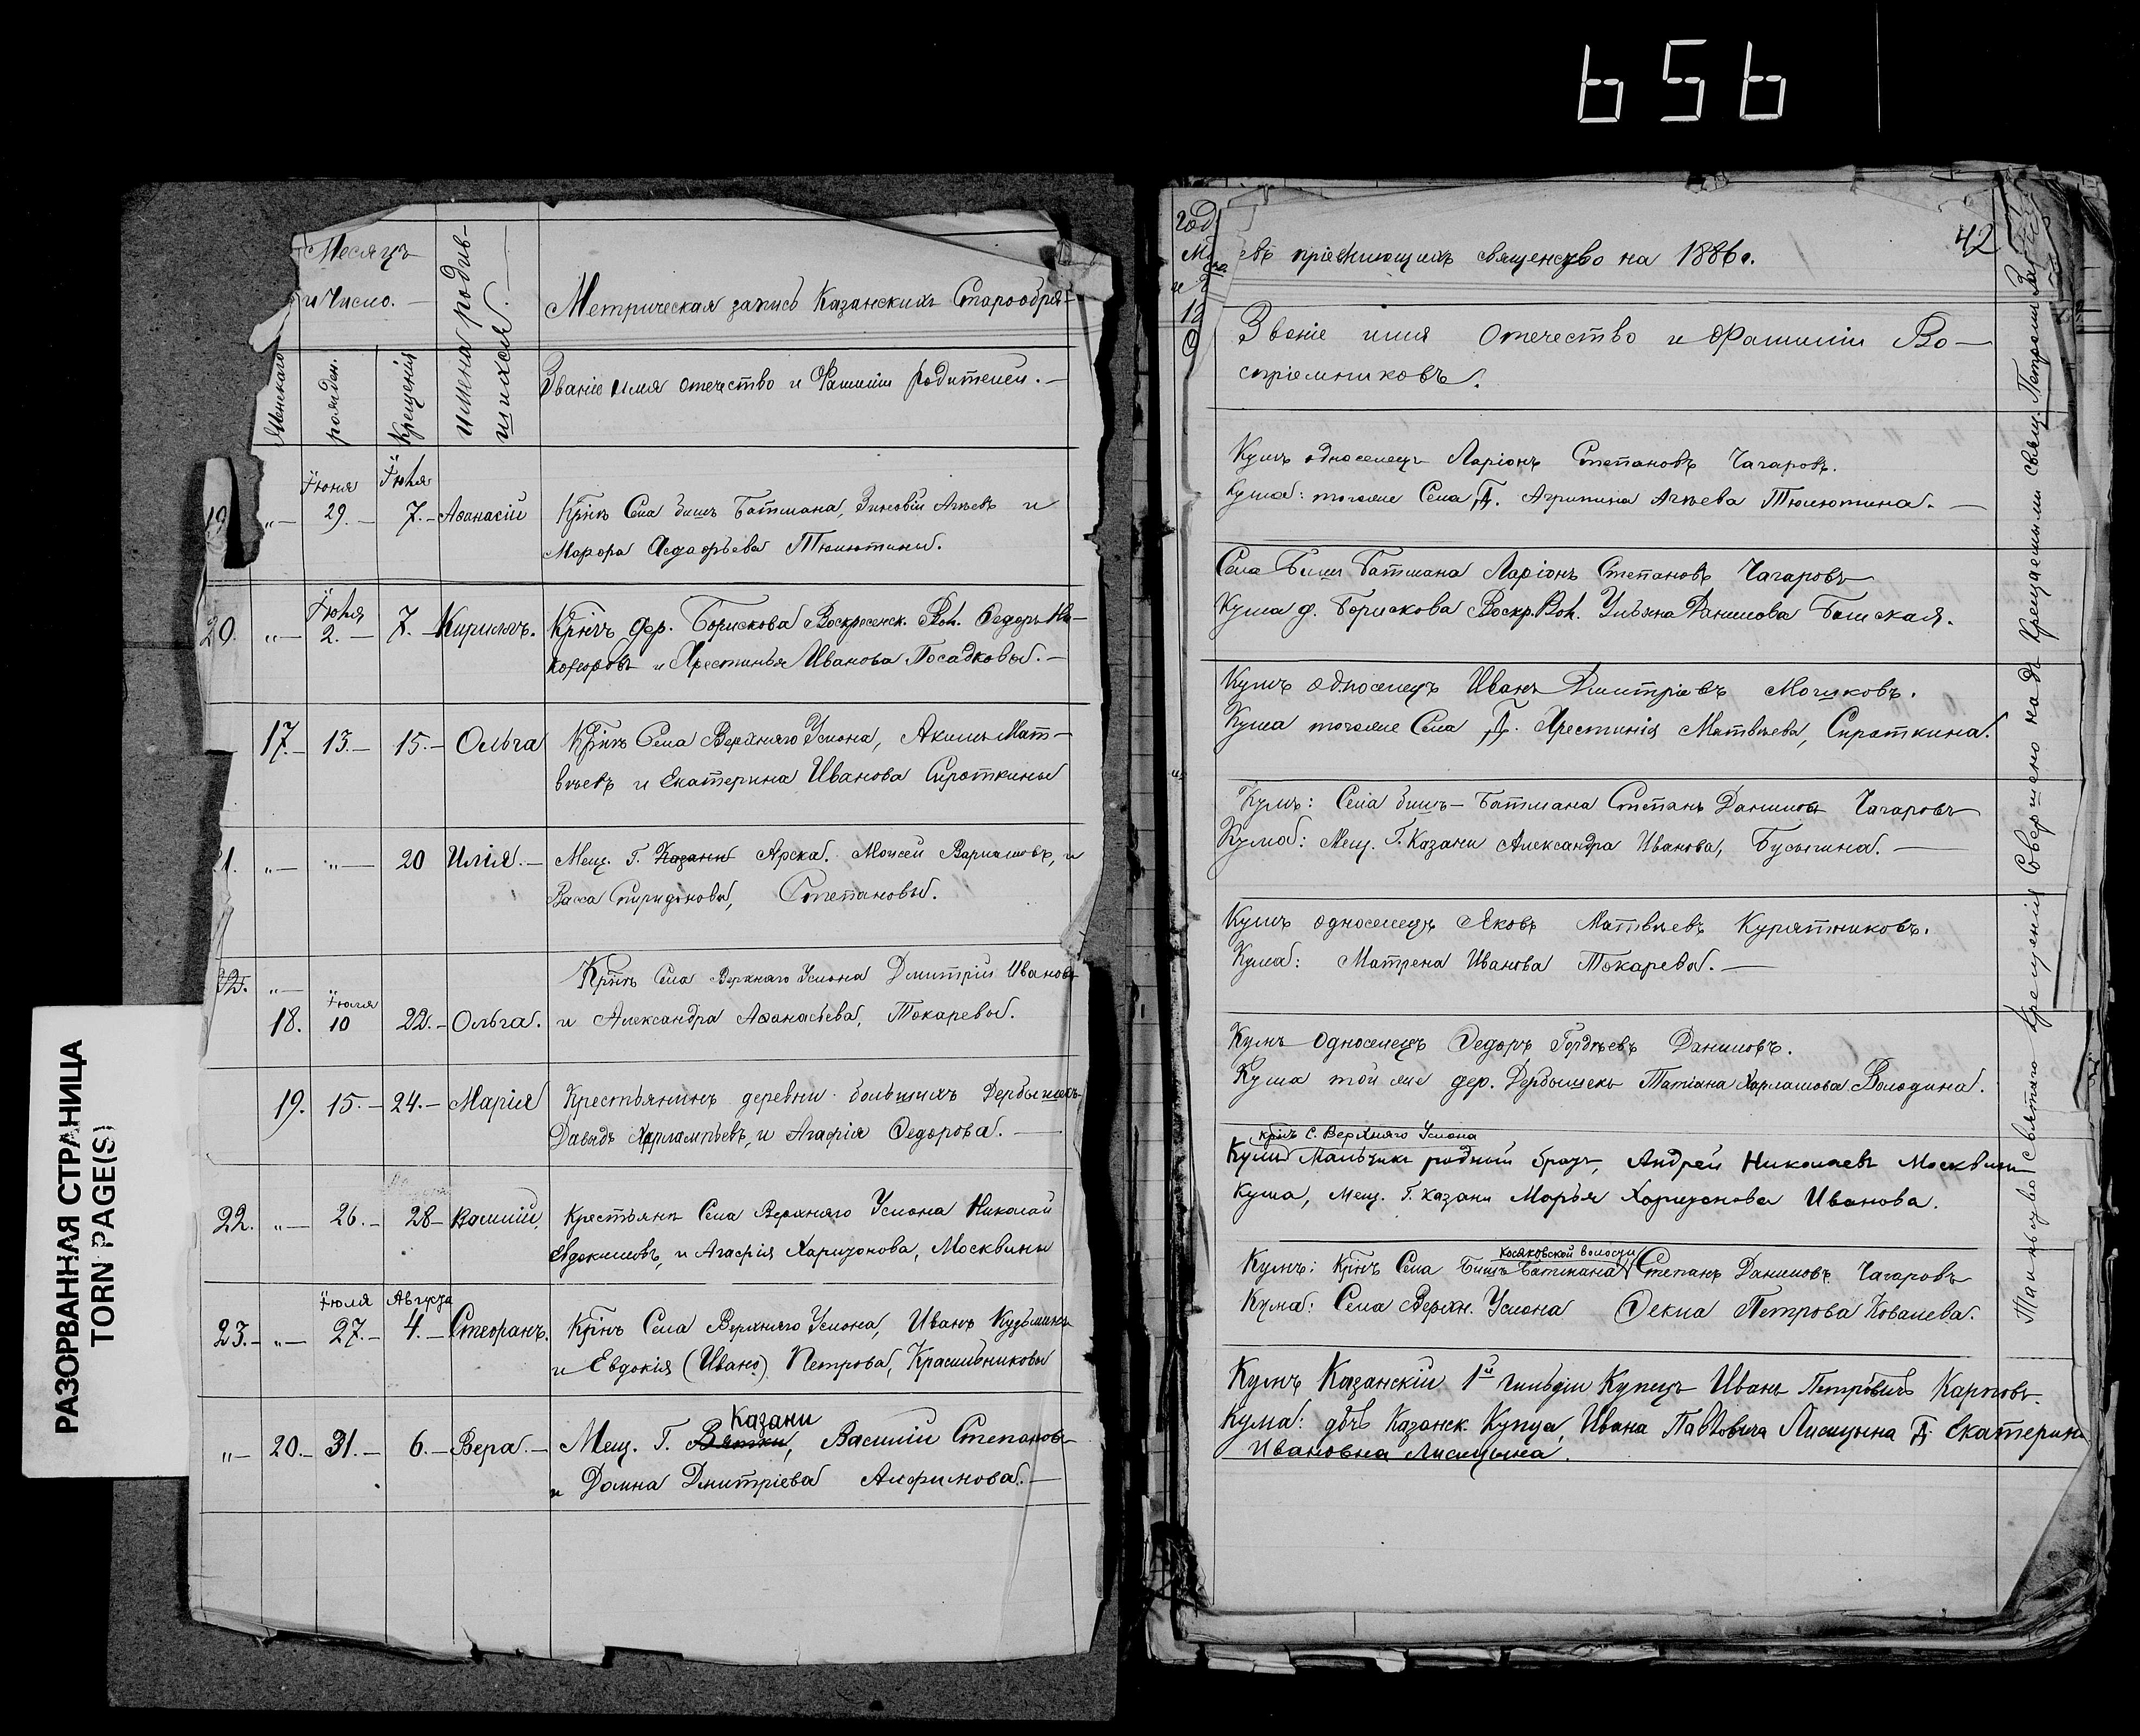 656
Месяцъ
и Число.
имена родив-
шихся.
Метрическая запись Казанскихъ Старообря-
Женскаго
рожден.
Крещенія
Званіе имя отечество и Фамиліи родителей.
Іюня
Іюля
19
„
29.
7.
Аѳанасій
Крнъ Села Бишъ Батмана, Зиновій Агѣевъ и
20.
„
Іюля
2.
7.
Кириллъ.
Крнъ дер. Борискова Воскресенск. Вол. Ѳедоръ Ни-
и Хрестинья Иванова Посадковы.
17.
13.
15.
Ольга
Крнъ Села Верхняго Услона, Акимъ Мат-
вѣевъ и Екатерина Иванова Сироткины
21.
„
„
20
Илія.
Мещ. Г. Казани Арска. Моисей Варламовъ, и
Васса Спиридонова, Степановы.
22.
„
Крнъ Села Верхняго Услона Дмитрій Ивановъ
18.
Іюля
10
22.
Ольга.
и Александра Аѳанасьева, Токаревы.
19.
15.
24.
Марія
Крестьянинъ деревни большихъ Дербышекъ
Давыдъ Харлампьевъ, и Агафія Ѳедорова.
22.
„
26.
28
Василій,
Крестьянъ Села Верхняго Услона Николай
Евдокимовъ, и Агафія Харитонова, Москвины
Іюля
Августа
23.
„
27.
4.
Стефанъ.
Крнъ Села Верхняго Услона, Иванъ Кузьминъ
и Евдокія (Ивано) Петрова, Красильниковы
„
20.
31.
6.
Вера.
Казани
Мещ. Г. Вятки, Василій Степановъ
и Домна Дмитріева Алфимова.
РАЗОРВАННАЯ СТРАНИЦА
TORN PAGE(S)
42
евъ пріемлющихъ священство на 1886 г.
Званіе имя Отечество и Фамиліи Во-
спріемниковъ.
Кумъ односелецъ Ларіонъ Степановъ Чагаровъ.
Кума: тогоже Села Д. Агрипина Агѣева Тюлютина.
Села Бишъ Батмана Ларіонъ Степановъ Чагаровъ
Кума д. Борискова Воскр. Вол. Ульяна Данилова
Кумъ односелецъ Иванъ Дмитріевъ
Кума тогоже Села Д. Хрестинія Матвѣева, Сироткина.
Кумъ: Села Бишъ-Батмана Степанъ Даниловъ Чагаровъ
Кума: Мещ. Г. Казани Александра Иванова, Бусыгина.
Кумъ односелецъ Яковъ Матвѣевъ Курятниковъ.
Кума: Матрена Иванова Токарева.
Кумъ односелецъ Ѳедоръ Гордѣевъ Даниловъ.
Кума той же дер. Дербышекъ Татіана Харлашова Володина.
крнъ с. Верхняго Услона
Кумъ Мальчикъ родный братъ, Андрей Николаевъ Москвинъ
Кума, Мещ. Г. Казани Марья Харитонова Иванова.
Косяковской волости
Кумъ: Крнъ Села Бишъ Батмана Степанъ Даниловъ Чагаровъ
Кума: Села Верхн. Услона Ѳекла Петрова Ковалева.
Кумъ Казанскій 1й гильдіи Купецъ Иванъ Петровичъ Карповъ.
Кума: дчъ Казанск. Купца, Ивана Павловича Лисицына Д. Екатерина
Ивановна Лисицына.
Таинъство святаго крещенія Совершено надъ Крещаемыми Свящ. Петромъ